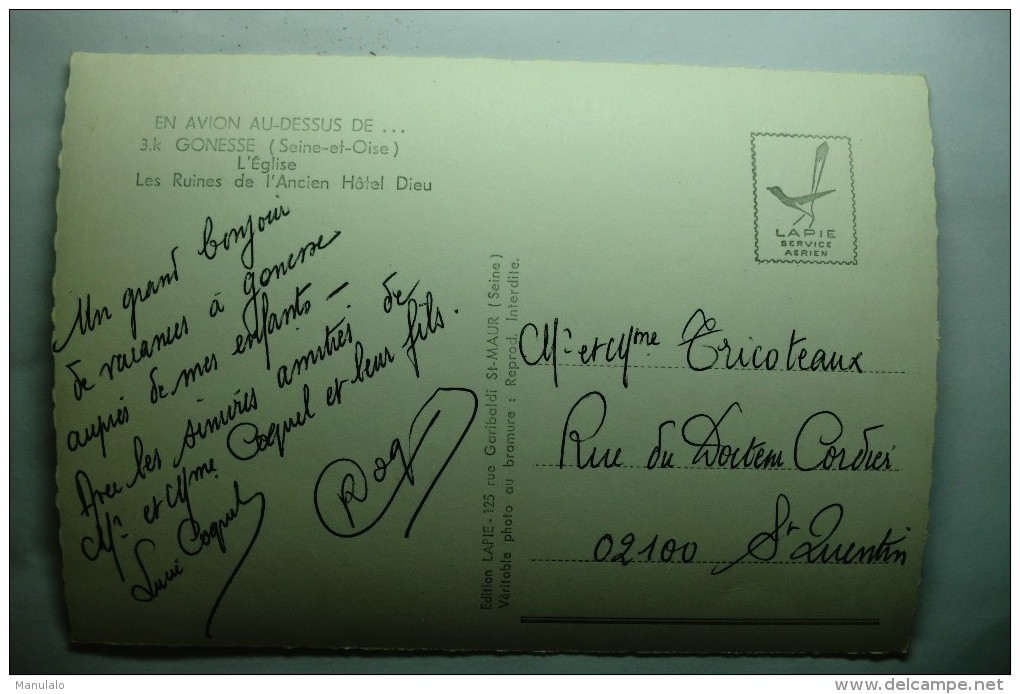 EN AVION AU-DESSUS DE ...
3.k GONESSE (Seine-et-Oise)
L'Église
Les Ruines de l'Ancien Hôtel Dieu
Un grand bonjour
de vacances à gonesse
auprès de mes enfants –
Avec les sincères amitiés de
Mr et Mme Coquel et leur fils.
Coquel
LAPIE
SERVICE
AERIEN
Edition LAPIE - 125 rue Garibaldi St-MAUR (Seine)
Véritable photo au bromure : Reprod. Interdite.
Mr et Mme Tricoteaux
Rue du Docteur Cordier
02100 St Quentin
Manulalo
delcampe.net